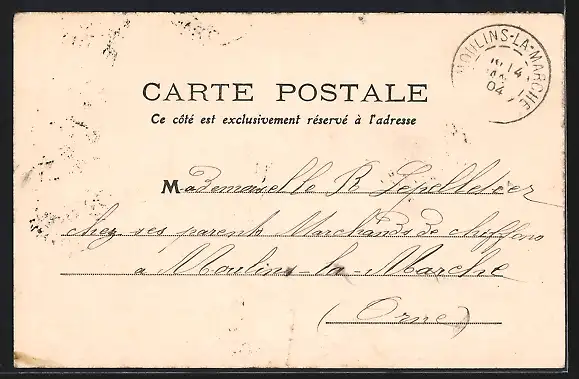 MOULINS-LA-MARCHE
14
04
CARTE POSTALE
Ce côté est exclusivement réservé à l'adresse
Mademoiselle R Lepelletier
chez ses parents Marchands de chiffons
à Moulins-la-Marche
(Orne)